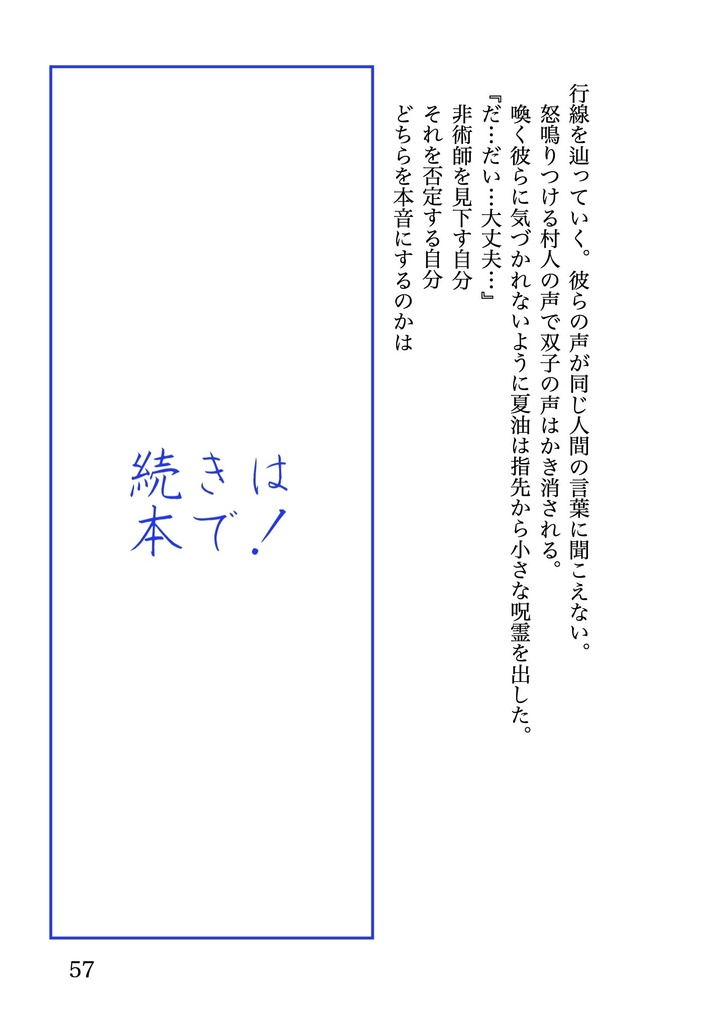 行線を辿っていく。彼らの声が同じ人間の言葉に聞こえない。
怒鳴りつける村人の声で双子の声はかき消される。
喚く彼らに気づかれないように夏油は指先から小さな呪霊を出した。
『だ…だい…大丈夫…』
非術師を見下す自分
それを否定する自分
どちらを本音にするのかは
続きは
本で！
57